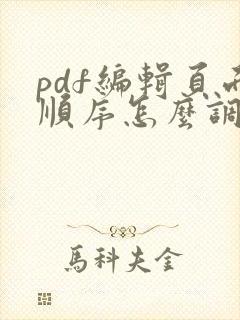 pdf編輯頁面
順序怎麼調
馬科夫金